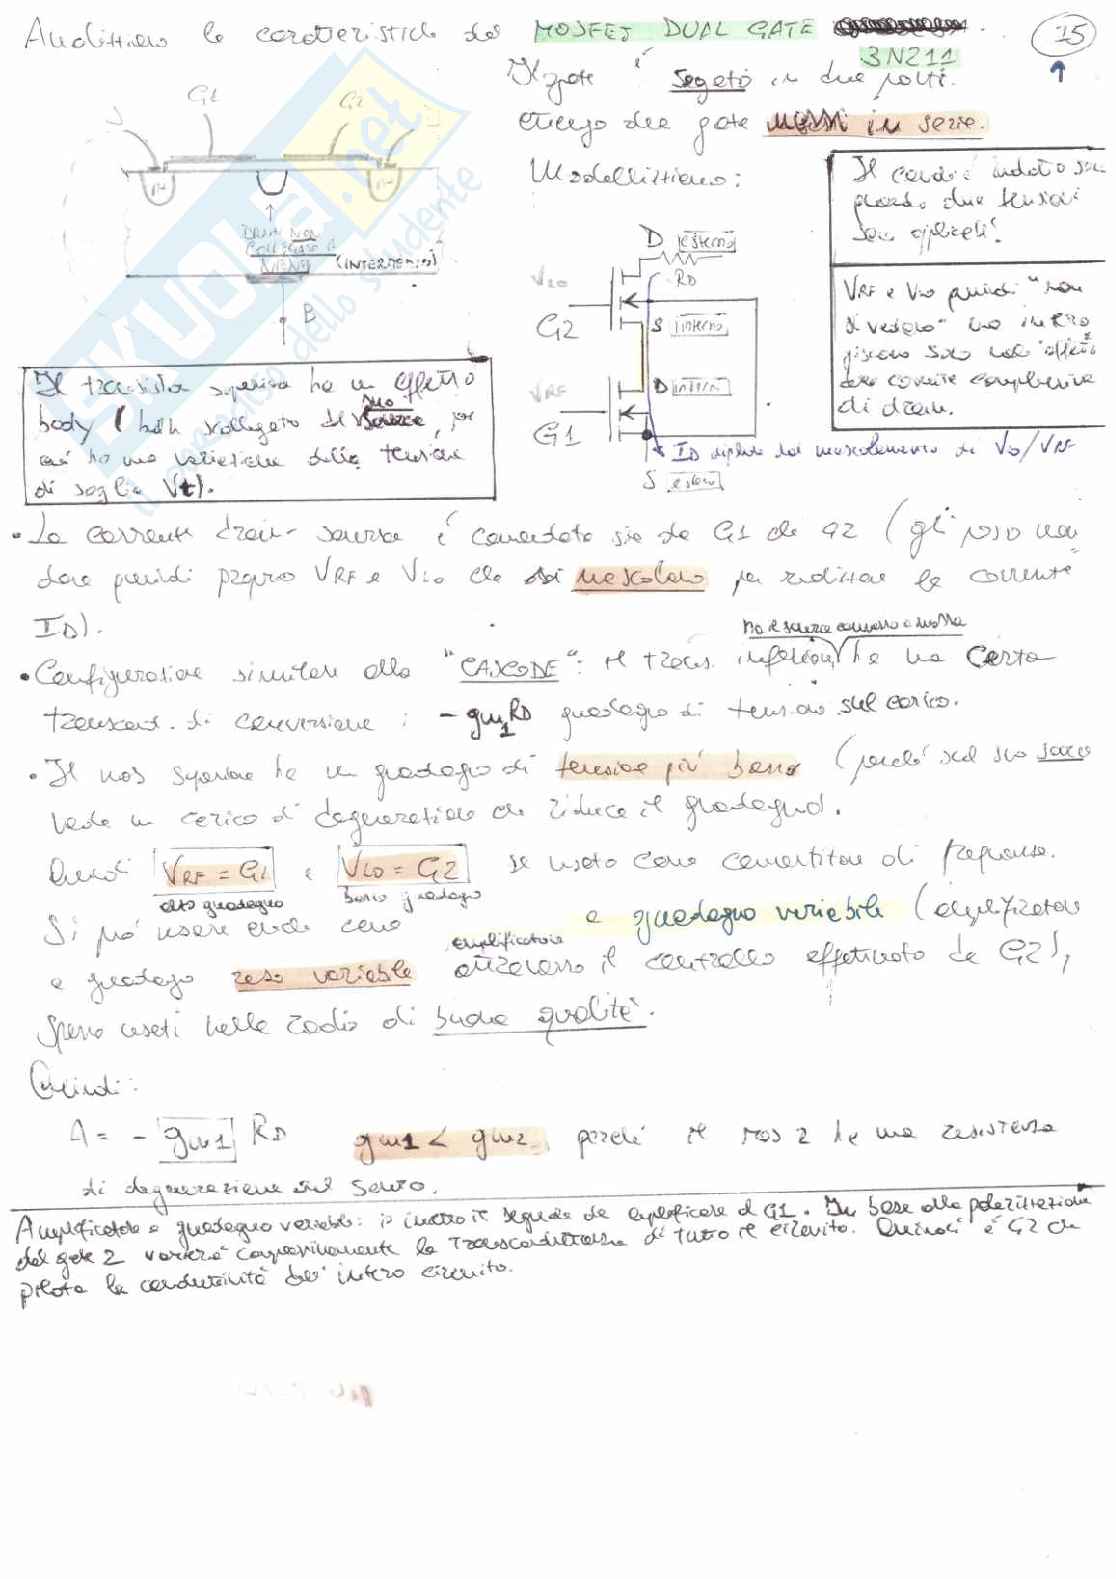 Analizziamo le caratteristiche del MOSFET DUAL GATE
3N211
15
Il gate è segato in due parti.
Ottengo due gate messi in serie.
Modellizziamo:
S
G1
G2
N+
N+
DRAIN NON
COLLEGATO A
(INTERMEDIO)
B
Il canale è indotto
quando due tensioni
sono applicate!
VRF e VLO quindi "non
si vedono" ma
solo nell'effetto
della corrente complessiva
di drain.
D esterno
RD
VLO
G2
S interno
D interno
VRF
G1
ID dipende dal mescolamento di VLO/VRF
S esterno
Il transistor superiore ha un effetto
body (non collegato al suo source, per
cui ho una variazione della tensione
di soglia Vt).
• La corrente drain-source è comandata sia da G1 che G2 (gli posso man-
dare quindi proprio VRF e VLO che si mescolano per realizzare la corrente
ID).
ha il source connesso a massa
• Configurazione similare alla "CASCODE": il trans. inferiore ha una certa
transcond. di conversione : -gm1 RD guadagno di tensione sul carico.
• Il mos superiore ha un guadagno di tensione più basso (perché sul suo source
vede un carico di degenerazione che riduce il guadagno).
Quindi VRF = G1 e VLO = G2 se usato come convertitore di frequenza.
alto guadagno basso guadagno
Si può usare anche come amplificatore a guadagno variabile (amplificatore
a guadagno reso variabile attraverso il controllo effettuato da G2),
spesso usati nelle radio di buona qualità.
Quindi:
A = - gm1 RD gm1 < gm2 perché il mos 2 ha una resistenza
di degenerazione sul source.
Amplificatore a guadagno variabile: io metto il segnale da amplificare al G1. In base alla polarizzazione
del gate 2 varierà complessivamente la transconduttanza di tutto il circuito. Quindi è G2 che
pilota la conduttività dell'intero circuito.
SKUOLA.net
il paradiso dello studente